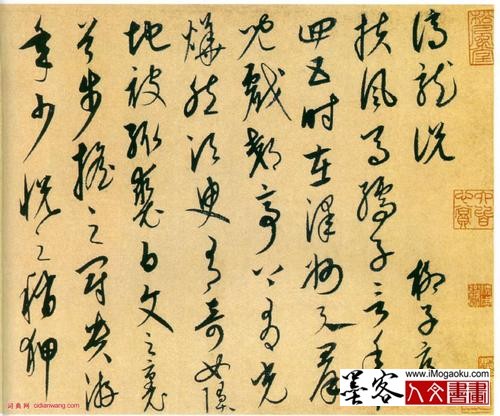 謫龍說 柳子厚
扶風馬孺子言年十
四五時在澤州與群
兒戲郊亭上有光
燁然須臾有奇女墜
地被緅裘白文之裏
首步搖之冠貴游
年少悅之稍狎
www.iMogaoku.com
墨客
人文書畫
词典网 cidianwang.com